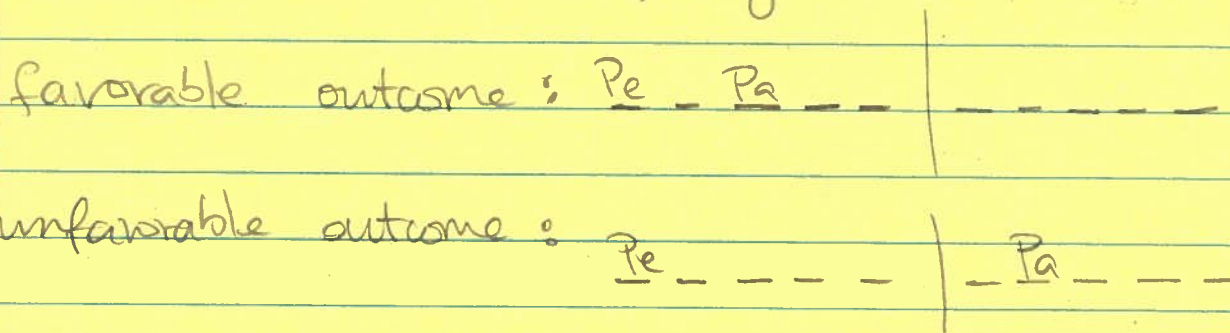 favorable outcome : Pe _ Pa _ _ | _ _ _ _ _
unfavorable outcome : Pe _ _ _ _ | _ Pa _ _ _